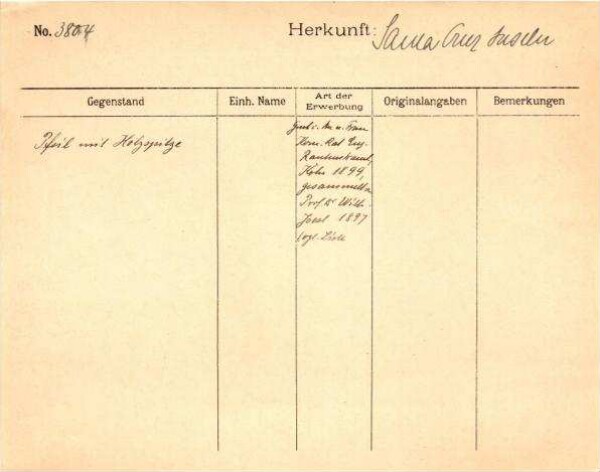 No. 3804 Herkunft: Santa Cruz Inseln
Gegenstand Einh. Name Art der Erwerbung Originalangaben Bemerkungen
Pfeil mit Holzspitze
u. Frau
Kom. Rat Eug.
Rautenstrauch,
Köln 1899,
gesammelt v.
Prof. Dr Wilh.
Joest 1897
vgl. Liste